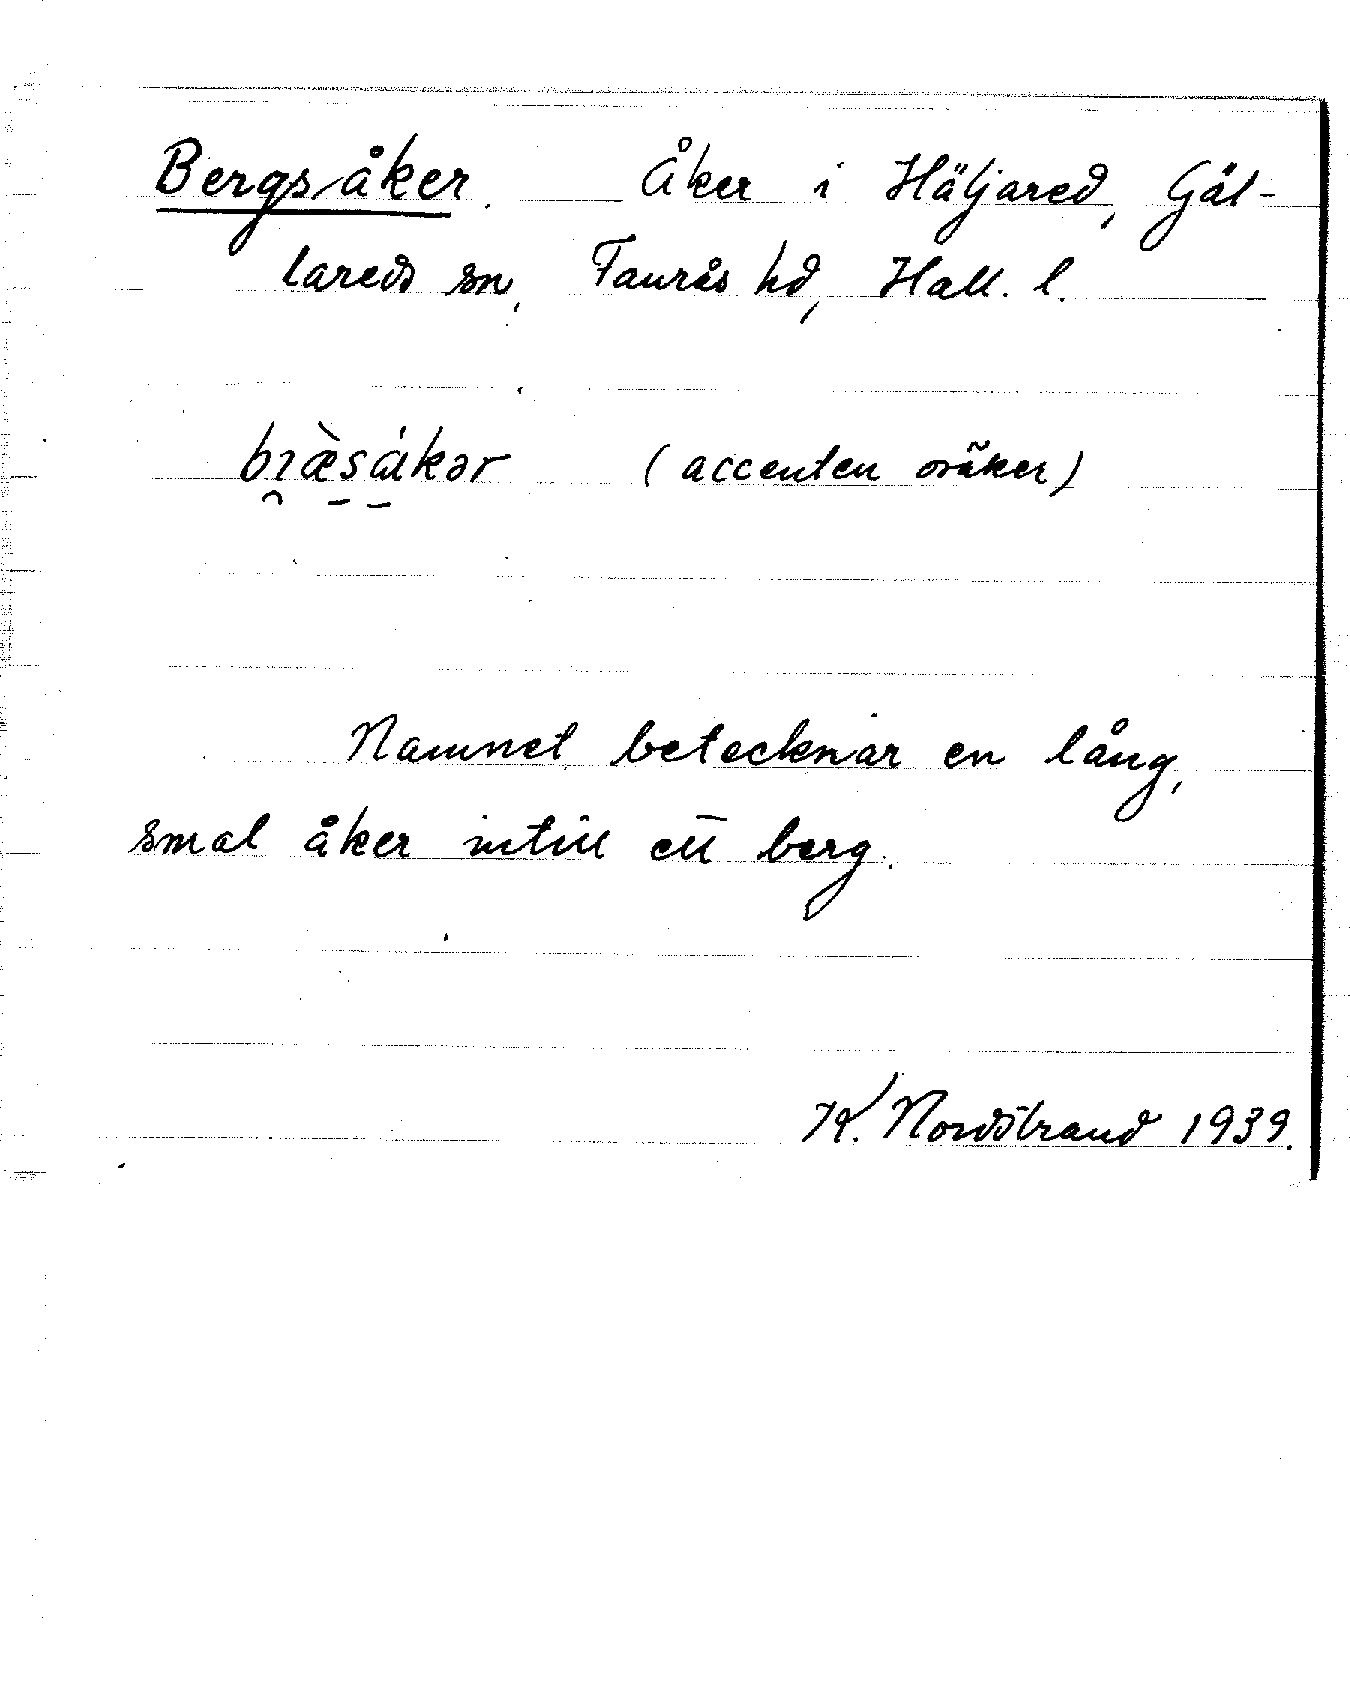 Bergsåker. Åker i Häljared, Gäl-
lareds sn, Faurås hd, Hall. l.
bræ̀såkər (accenten osäker)
Namnet betecknar en lång,
smal åker intill ett berg.
K. Nordstrand 1939.